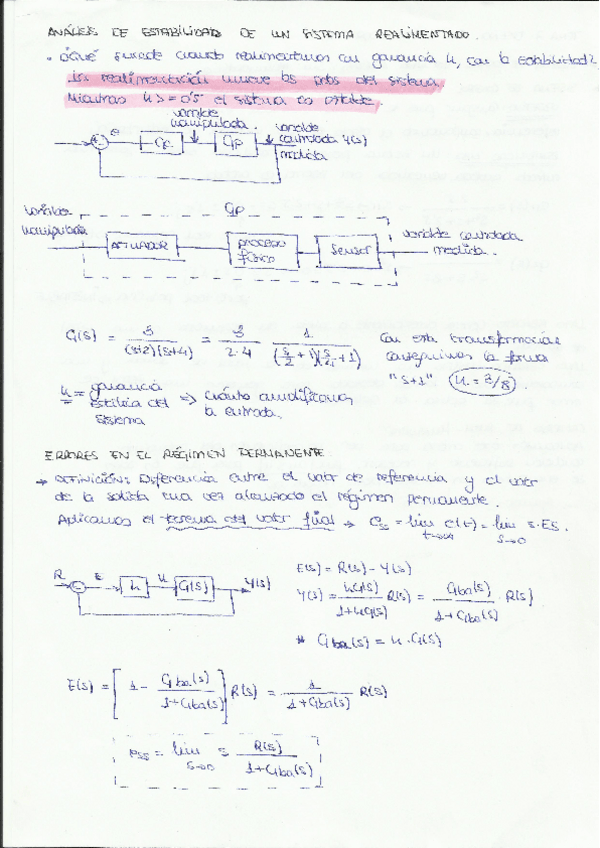 ANÁLISIS DE ESTABILIDAD DE UN SISTEMA REALIMENTADO.
• ¿Qué sucede cuando realimentamos con ganancia k, con la estabilidad?
La realimentación mueve los polos del sistema.
Mientras k >= 0'5 el sistema es estable.
variable manipulada.
variable controlada y(s) medida
e
Gc
Gp
Gp
variable manipulada
ACTUADOR
proceso físico
Sensor
variable controlada medida.
G(s) = 3/((s+2)(s+4)) = 3/(2·4) 1/((s/2+1)(s/4+1))
Con esta transformación
conseguimos la forma
"s+1" k = 3/8.
k = ganancia estática del sistema => cuánto amplificamos la entrada.
ERRORES EN EL RÉGIMEN PERMANENTE
→ DEFINICIÓN: Diferencia entre el valor de referencia y el valor
de la salida una vez alcanzado el régimen permanente.
Aplicamos el teorema del valor final → es = lim t→∞ e(t) = lim s→0 s·Es.
R
E
k
U
G(s)
Y(s)
E(s) = R(s) - Y(s)
Y(s) = kG(s)/(1+kG(s)) R(s) = Gba(s)/(1+Gba(s)) · R(s)
* Gba(s) = k·G(s)
E(s) = [1 - Gba(s)/(1+Gba(s))] R(s) = 1/(1+Gba(s)) R(s)
ess = lim s→0 s R(s)/(1+Gba(s))